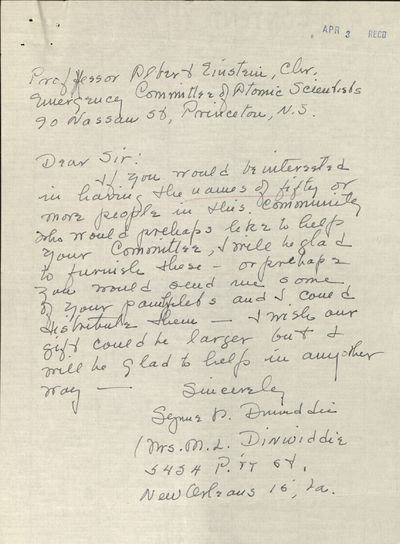 APR 3 RECD
Proffessor Albert Einstein, Chr.
Emergency Committee of Atomic Scientists
90 Nassau St, Princeton, N.J.
Dear Sir:
If you would be interested
in having the names of fifty or
more people in this community
who would prehaps like to help
your Committee, I will be glad
to furnish these — or prehaps
you would send me some
of your pamphlets and I could
distribute them — I wish our
gift could be larger but I
will be glad to help in any other
way —
Sincerely
Dinwiddie
(Mrs. M. L. Dinwiddie
5434 St.
New Orleans 15, La.